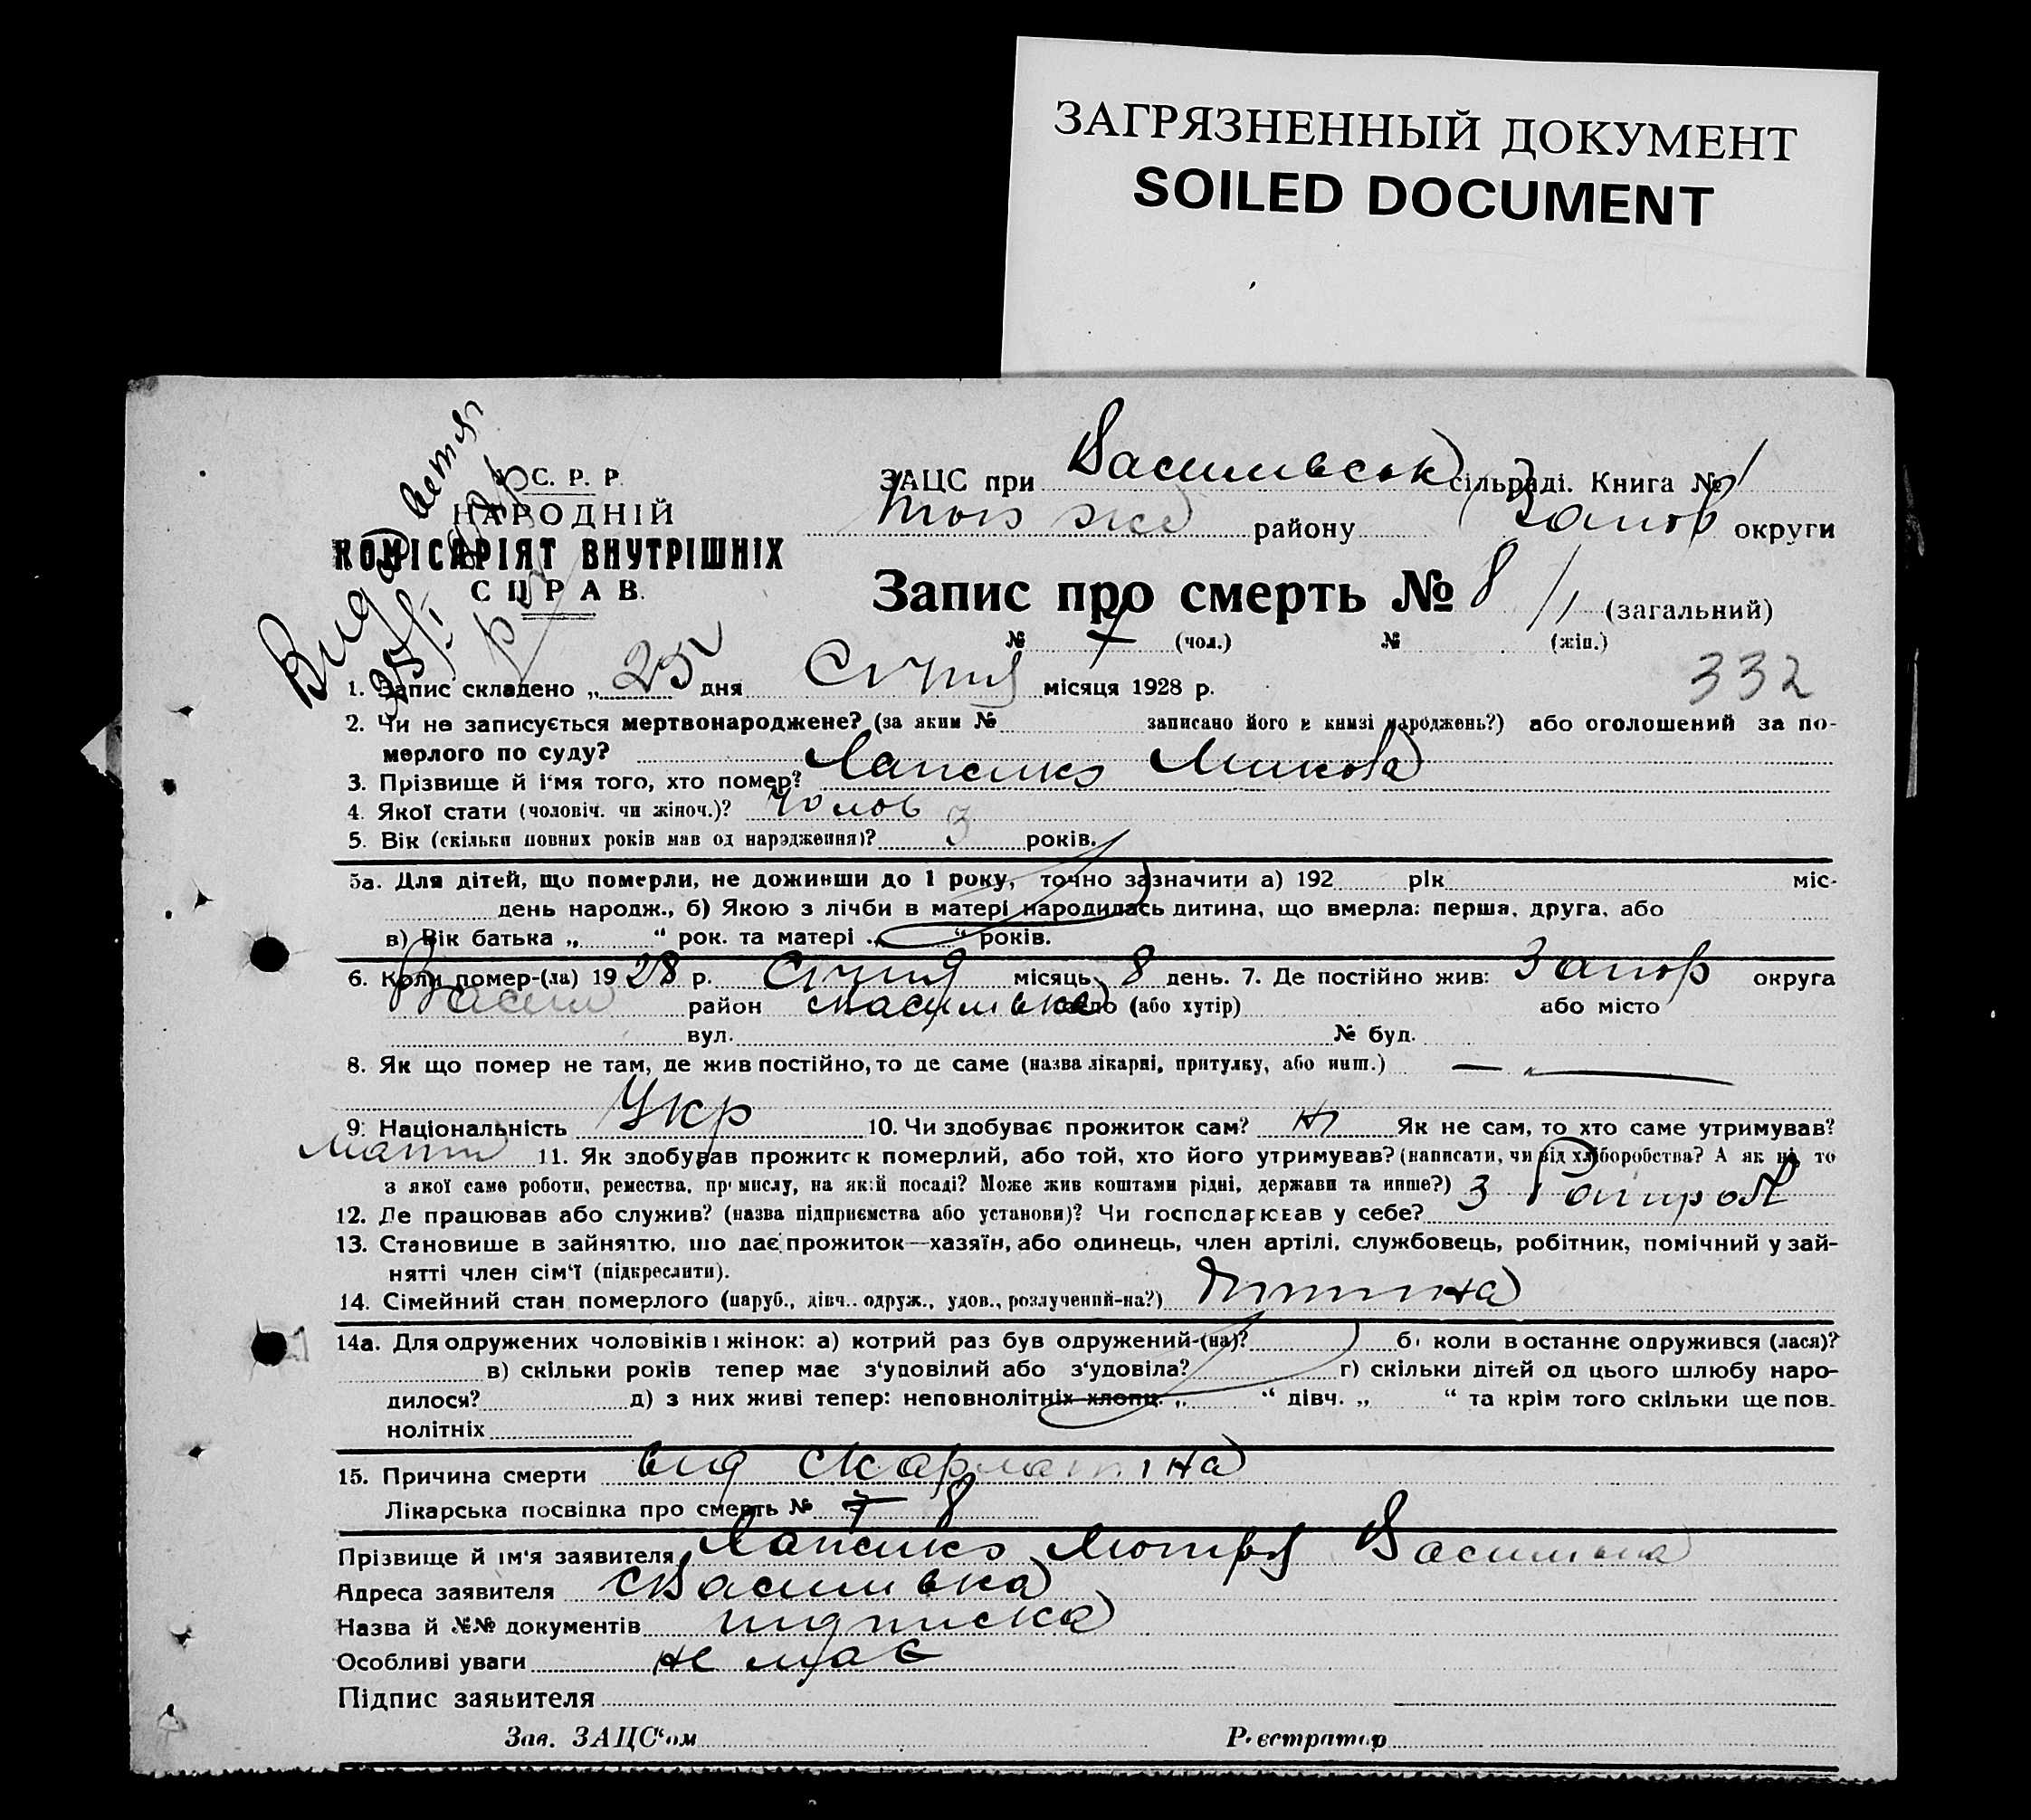 ЗАГРЯЗНЕННЫЙ ДОКУМЕНТ
SOILED DOCUMENT
С. Р. Р.
НАРОДНІЙ
КОМІСАРІЯТ ВНУТРІШНІХ
СПРАВ.
ЗАЦС при Васильвськ сільраді. Книга № 1
района Запор округи
Запис про смерть № 8 /1 (загальний)
№ 7 (чол.) № (жін.)
332
1. Запис складено „ 25 дня Січня місяця 1928 р.
2. Чи не записується мертвонароджене? (за яким № записано його в книзі народжень?) або оголошений за по-
мерлого по суду?
3. Прізвище й ім'я того, хто помер? Лапенко Микола
4. Якої стати (чоловіч. чи жіноч.)? Чолов
5. Вік (скільки повних років мав од народження)? 3 років.
5а. Для дітей, що померли, не доживши до 1 року, точно зазначити а) 192 рік міс-
день народж., б) Якою з лічби в матері народилась дитина, що вмерла: перша, друга, або
в) Вік батька „ “ рок. та матері „ “ років.
6. Коли помер-(ла) 1928 р. Січня місяць 8 день. 7. Де постійно жив: Запор округа
Васил район Василівка село (або хутір) або місто
вул. № буд.
8. Як що помер не там, де жив постійно, то де саме (назва лікарні, притулку, або инш.) —
9. Національність Укр 10. Чи здобуває прожиток сам? Ні Як не сам, то хто саме утримував?
Мати 11. Як здобував прожиток померлий, або той, хто його утримував? (написати, чи від хліборобства? А як ні, то
з якої саме роботи, ремества, промислу, на якій посаді? Може жив коштами рідні, держави та инше?) З
12. Де працював або служив? (назва підприємства або установи)? Чи господарював у себе?
13. Становище в зайняттю, що дає прожиток—хазяїн, або одинець, член артілі, службовець, робітник, помічний у зай-
нятті член сім'ї (підкреслити).
14. Сімейний стан померлого (паруб., дівч., одруж., удов., розлучений-на?) Дитина
14а. Для одружених чоловіків і жінок: а) котрий раз був одружений-(на)? б) коли востаннє одружився (лася)?
в) скільки років тепер має з'удовілий або з'удовіла? г) скільки дітей од цього шлюбу наро-
дилося? д) з них живі тепер: неповнолітніх хлопц. „ “ дівч. „ “ та крім того скільки ще пов-
нолітніх
15. Причина смерти від Скарлатина
Лікарська посвідка про смерть № 7 8
Прізвище й ім'я заявителя Лапенко Мотря Василівна
Адреса заявителя с Василівка
Назва й №№ документів підписка
Особливі уваги не має
Підпис заявителя
Зав. ЗАЦС'ом Реєстратор